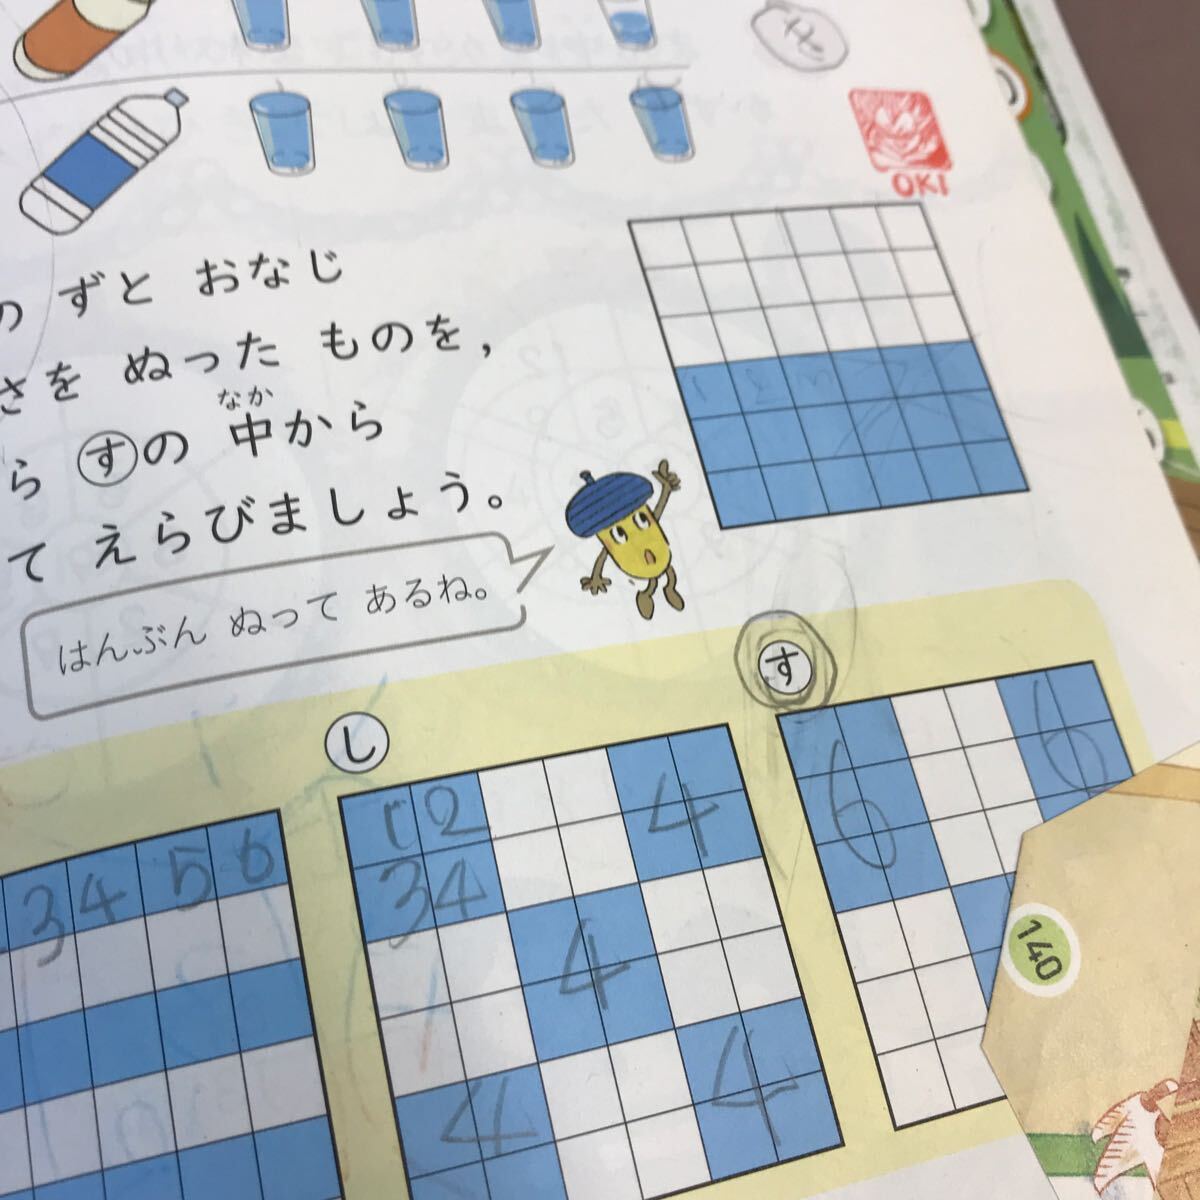 せ
OKI
の ずと おなじ
さを ぬった ものを,
なか
ら すの 中から
て えらびましょう。
はんぶん ぬって あるね。
す
し
6 6
1 2 4
3 4
3 4 5 6
4
4 4
140